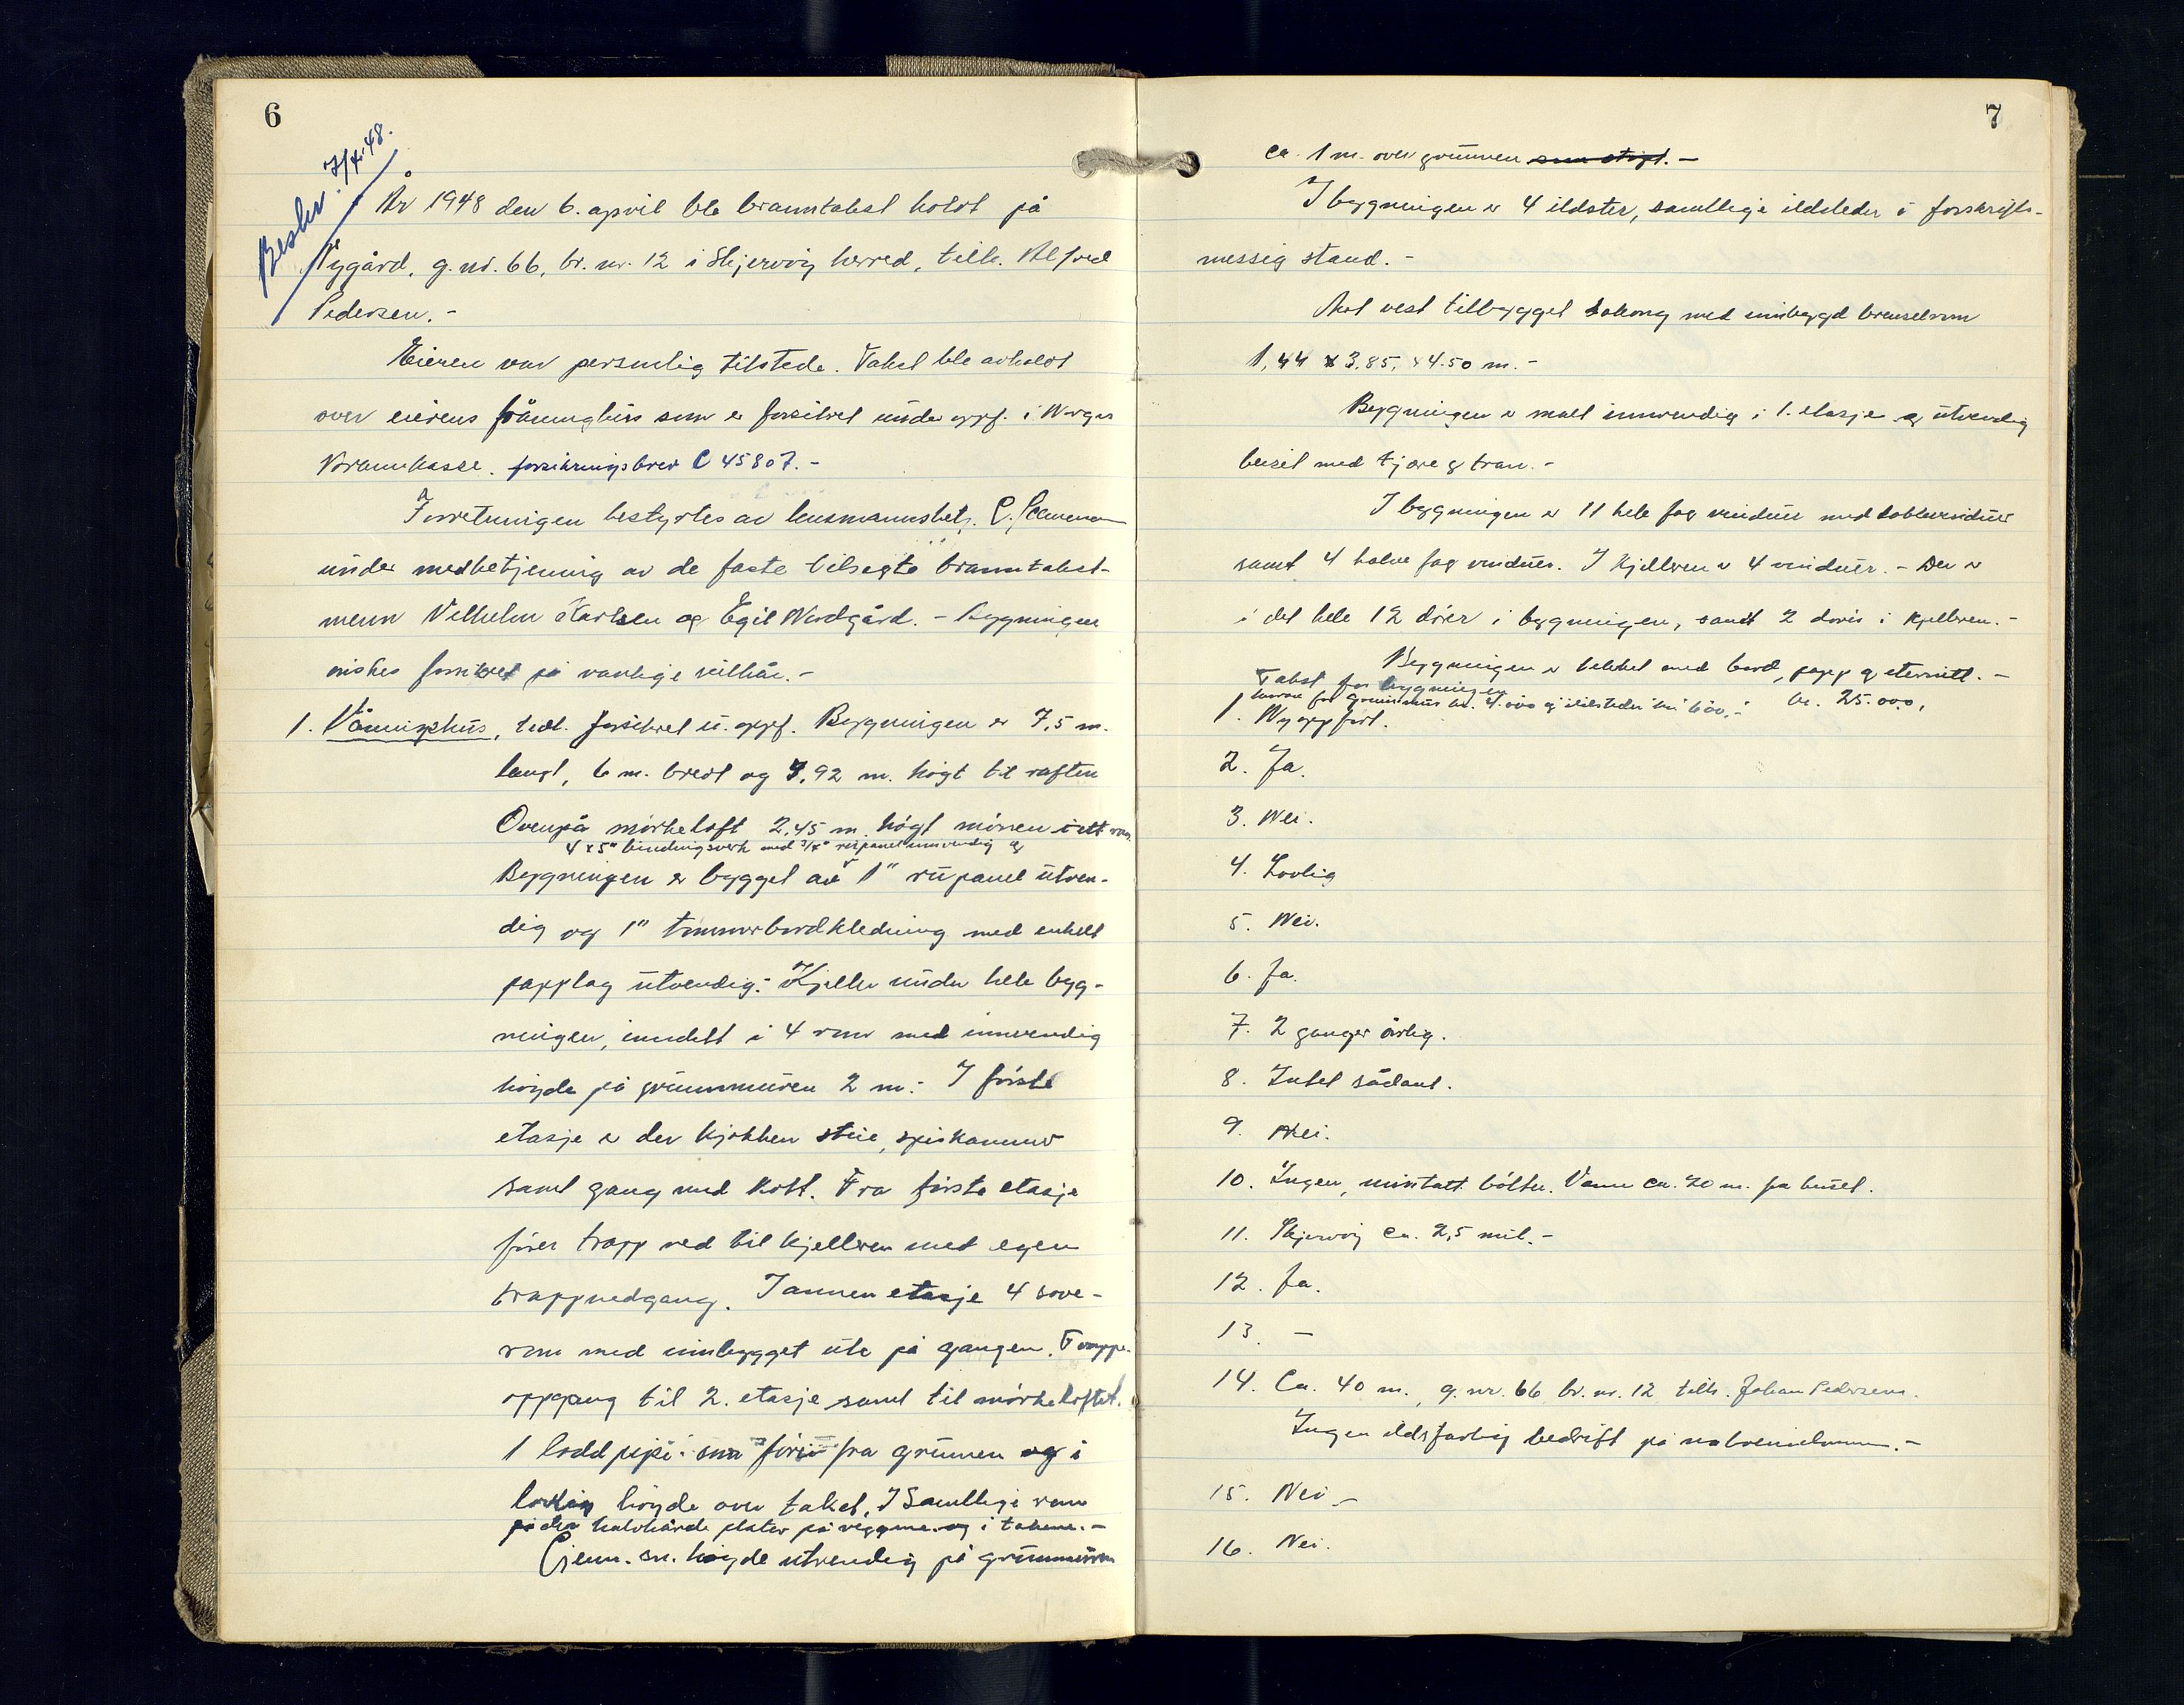 6
Beskr. 7/4.48.
År 1948 den 6. april ble branntakst holdt på
Nygård, g.nr. 66, br. nr. 12 i Skjervøy herred, tilh. Alfred
Pedersen. -
Eieren var personlig tilstede. Takst ble avholdt
over eierens våningshus som er forsikret under oppf. i Norges
Brannkasse. forsikringsbrev C 45807. -
Forretningen bestyrtes av lensmannsbetj.
under medbetjening av de faste tilsagte branntakst-
menn Vilhelm Karlsen og Egil Nordgård. - Bygningen
ønskes forsikret på vanlige vilkår. -
1. Våningshus, tidl. forsikret u. oppf. Bygningen er 7,5 m.
langt, 6 m. bredt og 4,92 m. høgt til raften
Ovenpå mørkeloft 2,45 m. høgt mønen i ett rom.
4 x 5" bindingsverk med 3/4" rupanel innvendig og
Bygningen er bygget av 1" rupanel utven-
dig og 1" tømmerbordkledning med enkelt
papplag utvendig. - Kjeller under hele byg-
ningen, inndelt i 4 rom med innvendig
høyde på grunnmuren 2 m. - I første
etasje er der kjøkken stue, spiskammer
samt gang med kott. Fra første etasje
fører trapp ned til kjelleren med egen
trappnedgang. I annen etasje 4 sove-
rom med innbygget ute på gangen. Trappe-
oppgang til 2. etasje samt til mørkeloftet.
1 loddpipe som fører fra grunnen og i
lovlig høyde over taket. I samtlige rom
er der halvhårde plater på veggene og i takene. -
Gjenn. sn. høyde utvendig på grunnmuren
7
ca. 1 m. over grunnen som stigt. -
I bygningen er 4 ildster, samtlige ildsteder i forskrifts-
messig stand. -
Mot vest tilbygget med innbygd brenselrom
1,44 x 3,85, x 4.50 m. -
Bygningen er malt innvendig i 1. etasje og utvendig
beiset med tjære og tran. -
I bygningen er 11 hele fag vinduer med dobbevinduer
samt 4 halve fag vinduer. I kjelleren er 4 vinduer. - Der er
i det hele 12 dører i bygningen, samt 2 dører i kjelleren. -
Bygningen er tekket med bord, papp og eternitt. -
Takst for bygningen kr. 25.000,
hvorav for grunnmur kr. 4.000 og ildsteder kr. 600, -
1. Ny oppført.
2. Ja.
3. Nei.
4. Lovlig
5. Nei.
6. Ja.
7. 2 ganger årlig.
8. Intet sådant.
9. Nei.
10. Ingen, unntatt bøtter. Vann ca. 20 m. fra huset.
11. Skjervøy ca. 2,5 mil. -
12. Ja.
13. -
14. Ca. 40 m., g. nr. 66 br. nr. 12 tilh. Johan Pedersen.
Ingen ildsfarlig bedrift på naboeiendommen. -
15. Nei -
16. Nei.